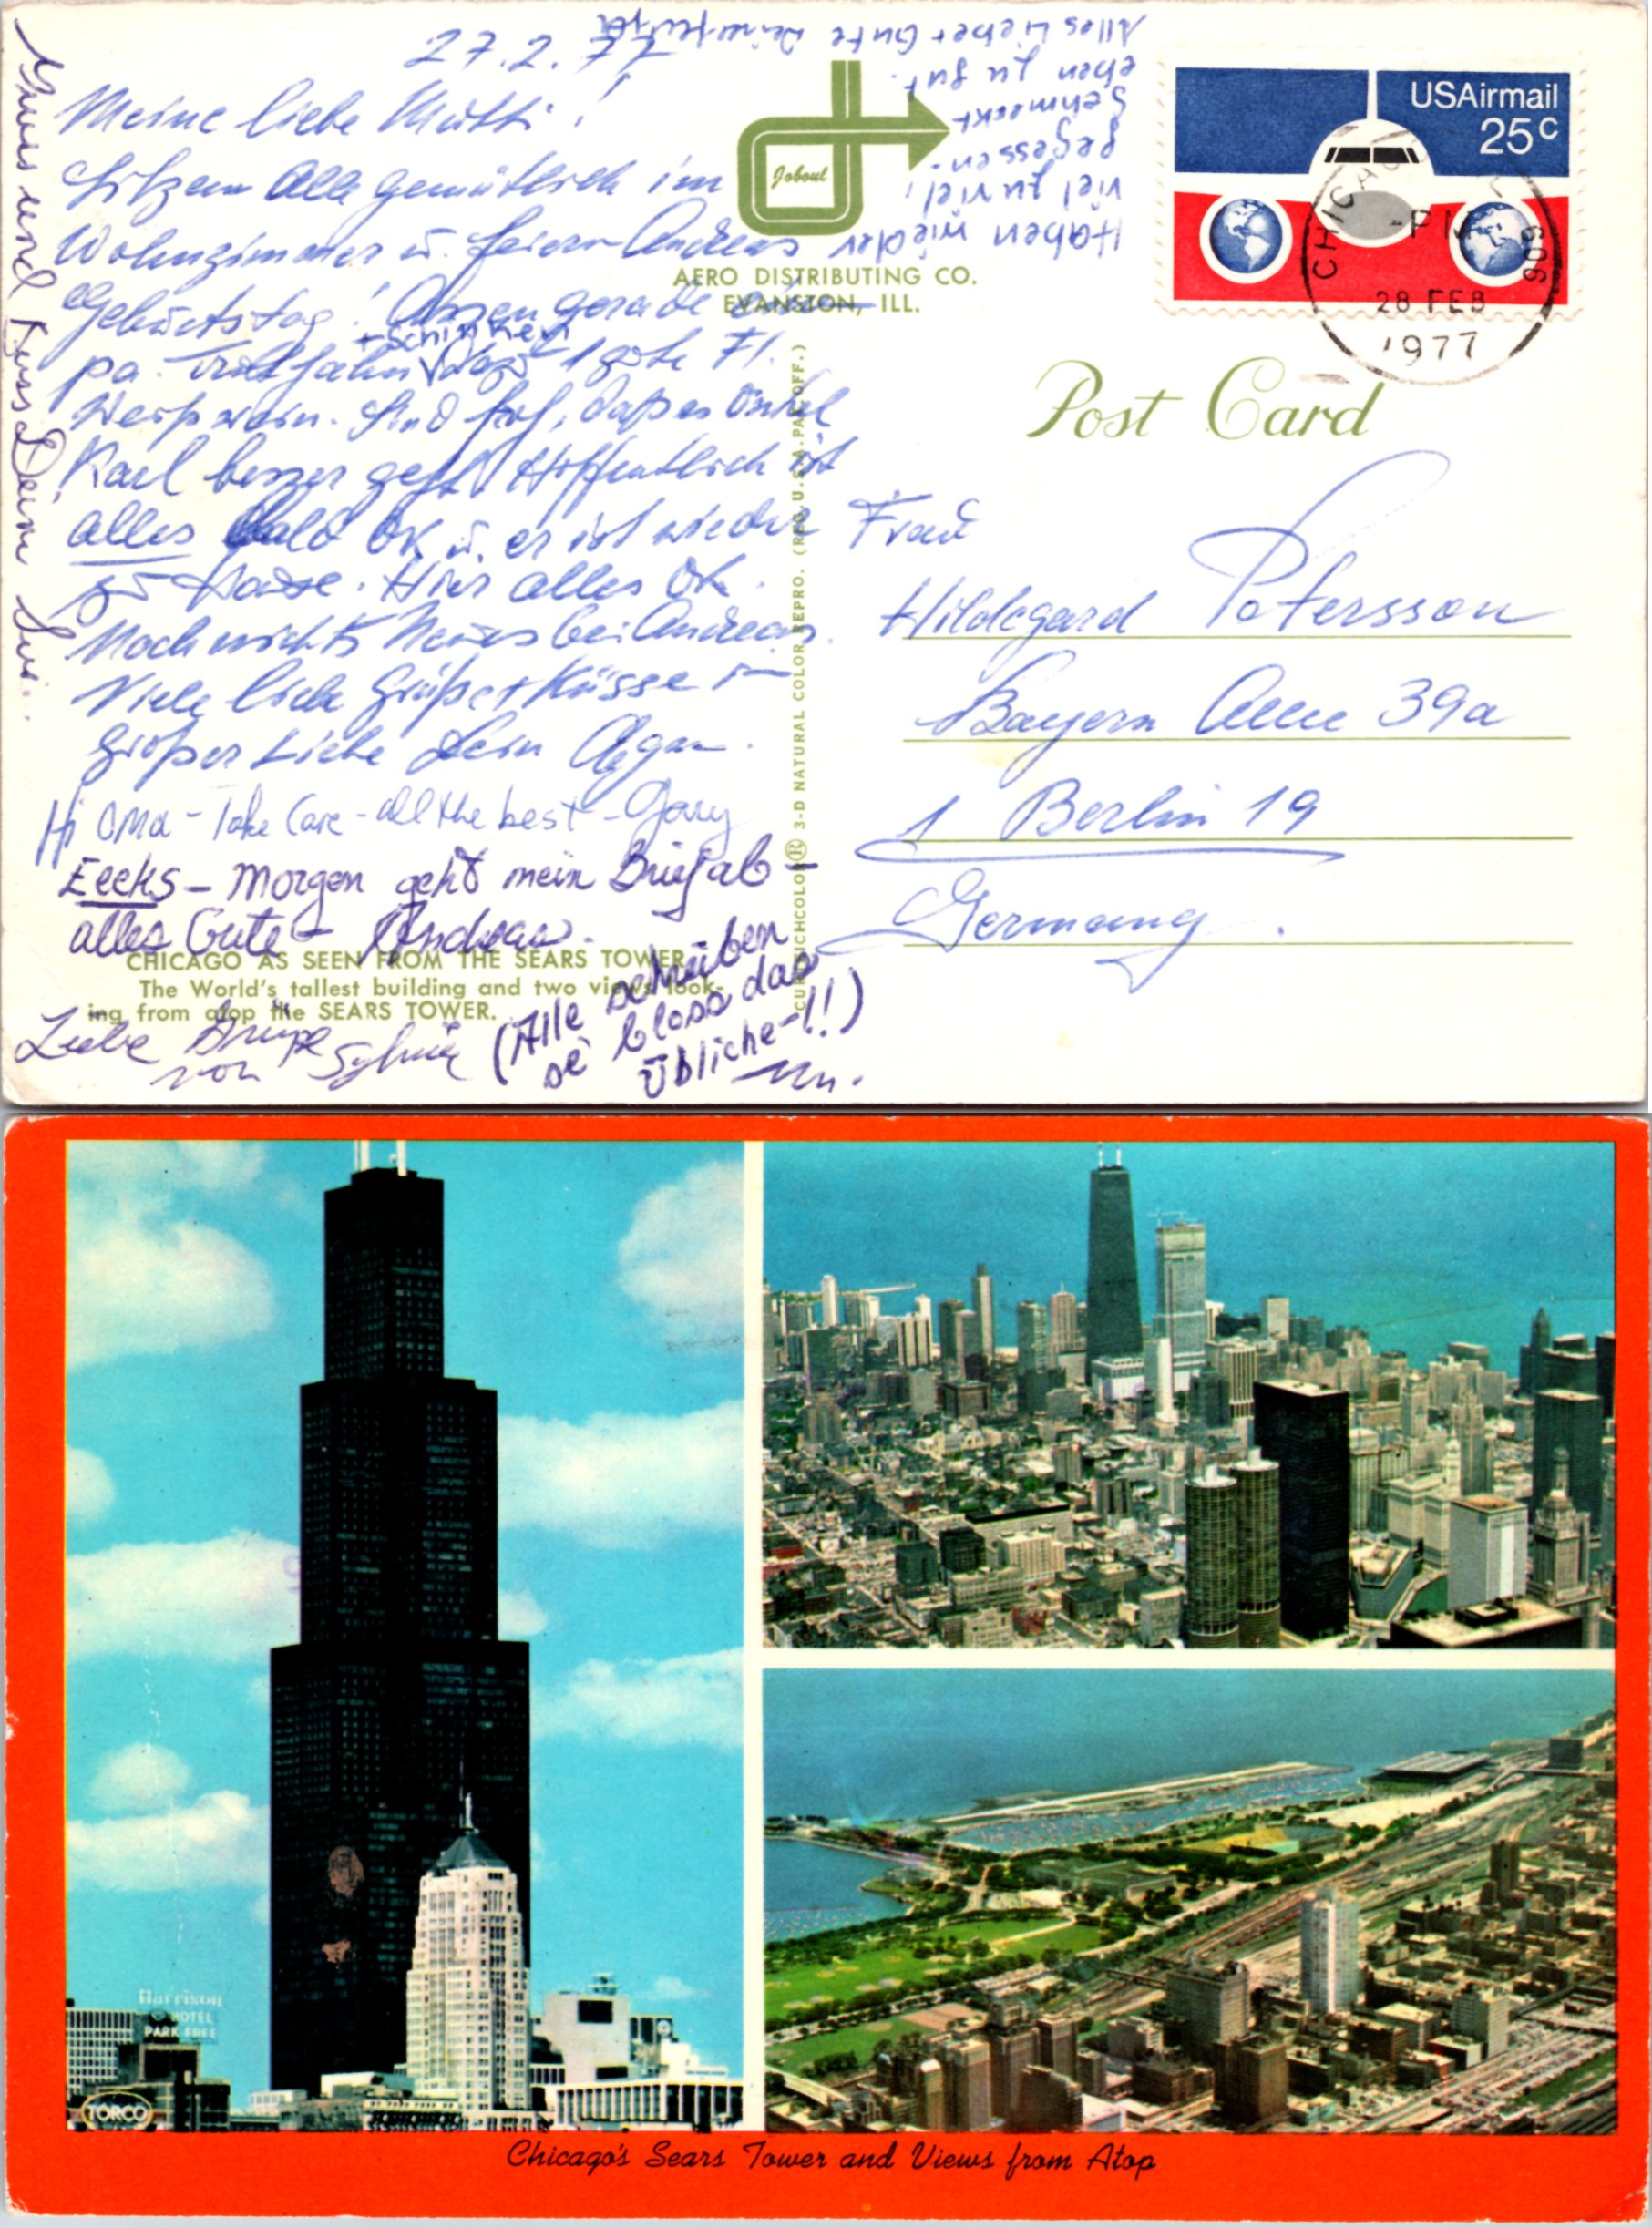 27.2.77
Meine liebe Mutti!
Sitzen alle gemütlich im
Wohnzimmer u. feiern Andreas
Geburtstag! Assen gerade
+ Schinken
pa. Truthahn dazu 1 gute Fl.
Weißwein. Sind froh, daß es Onkel
Karl besser geht. Hoffentlich ist
alles bald OK u. er ist wieder
zu Hause. Hier alles OK.
Noch nichts Neues bei Andreas.
Viele liebe Grüße + Küsse in
großer Liebe Dein
Hi OMA - Take Care - all the best - Gary
Eecks - Morgen geht mein Brief ab -
alles Gute - Andreas.
Liebe Grüße
von Sylvia
(Alle schreiben
se bloss das
übliche-!!)
Gruss und Kuss Dein
Haben wieder
viel zu viel!
gegessen.
Schmeckt
eben zu gut.
Alles Liebe + Gute Deine
Joboul
AERO DISTRIBUTING CO.
EVANSTON, ILL.
CURTEICHCOLOR® 3-D NATURAL COLOR REPRO. (REG. U.S.A. PAT. OFF.)
CHICAGO AS SEEN FROM THE SEARS TOWER
The World's tallest building and two views look-
ing from atop the SEARS TOWER.
USAirmail
25c
CHICAGO
PM
606
28 FEB
1977
Post Card
Frau
Hildegard Petersson
Bayern Allee 39a
1 Berlin 19
Germany.
Harrison
HOTEL
PARK FREE
TORCO
Chicago's Sears Tower and Views from Atop